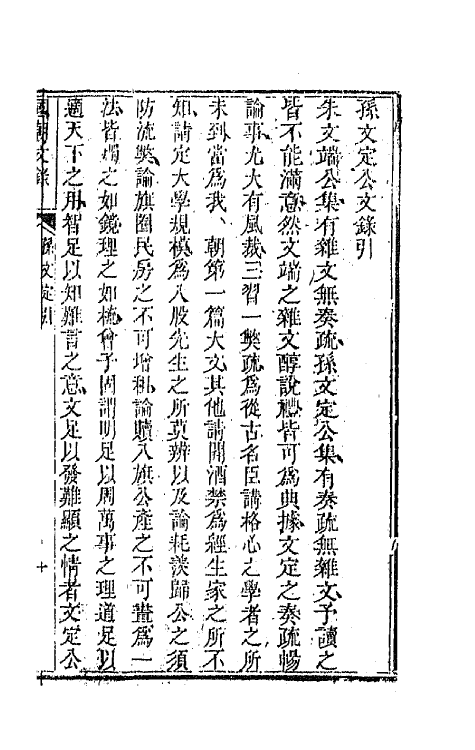 孫文定公文錄引
朱文端公集有雜文無奏疏孫文定公集有奏疏無雜文予讀之
皆不能滿意然文端之雜文醇說禮皆可為典據文定之奏疏暢
論事尤大有風裁三習一獘疏為從古名臣講格心之學者之所
未到當為我　朝第一篇大文其他請開酒禁為經生家之所不
知請定大學規模為八股先生之所莫辨以及論耗羨歸公之須
防流獘論旗圈民房之不可增租論贖入旗公產之不可畫為一
法皆燭之如鏡理之如梳曾子固謂明足以周萬事之理道足以
適天下之用智足以知難言之意文足以發難顯之情者文定公
國朝文錄　孫文定引　十